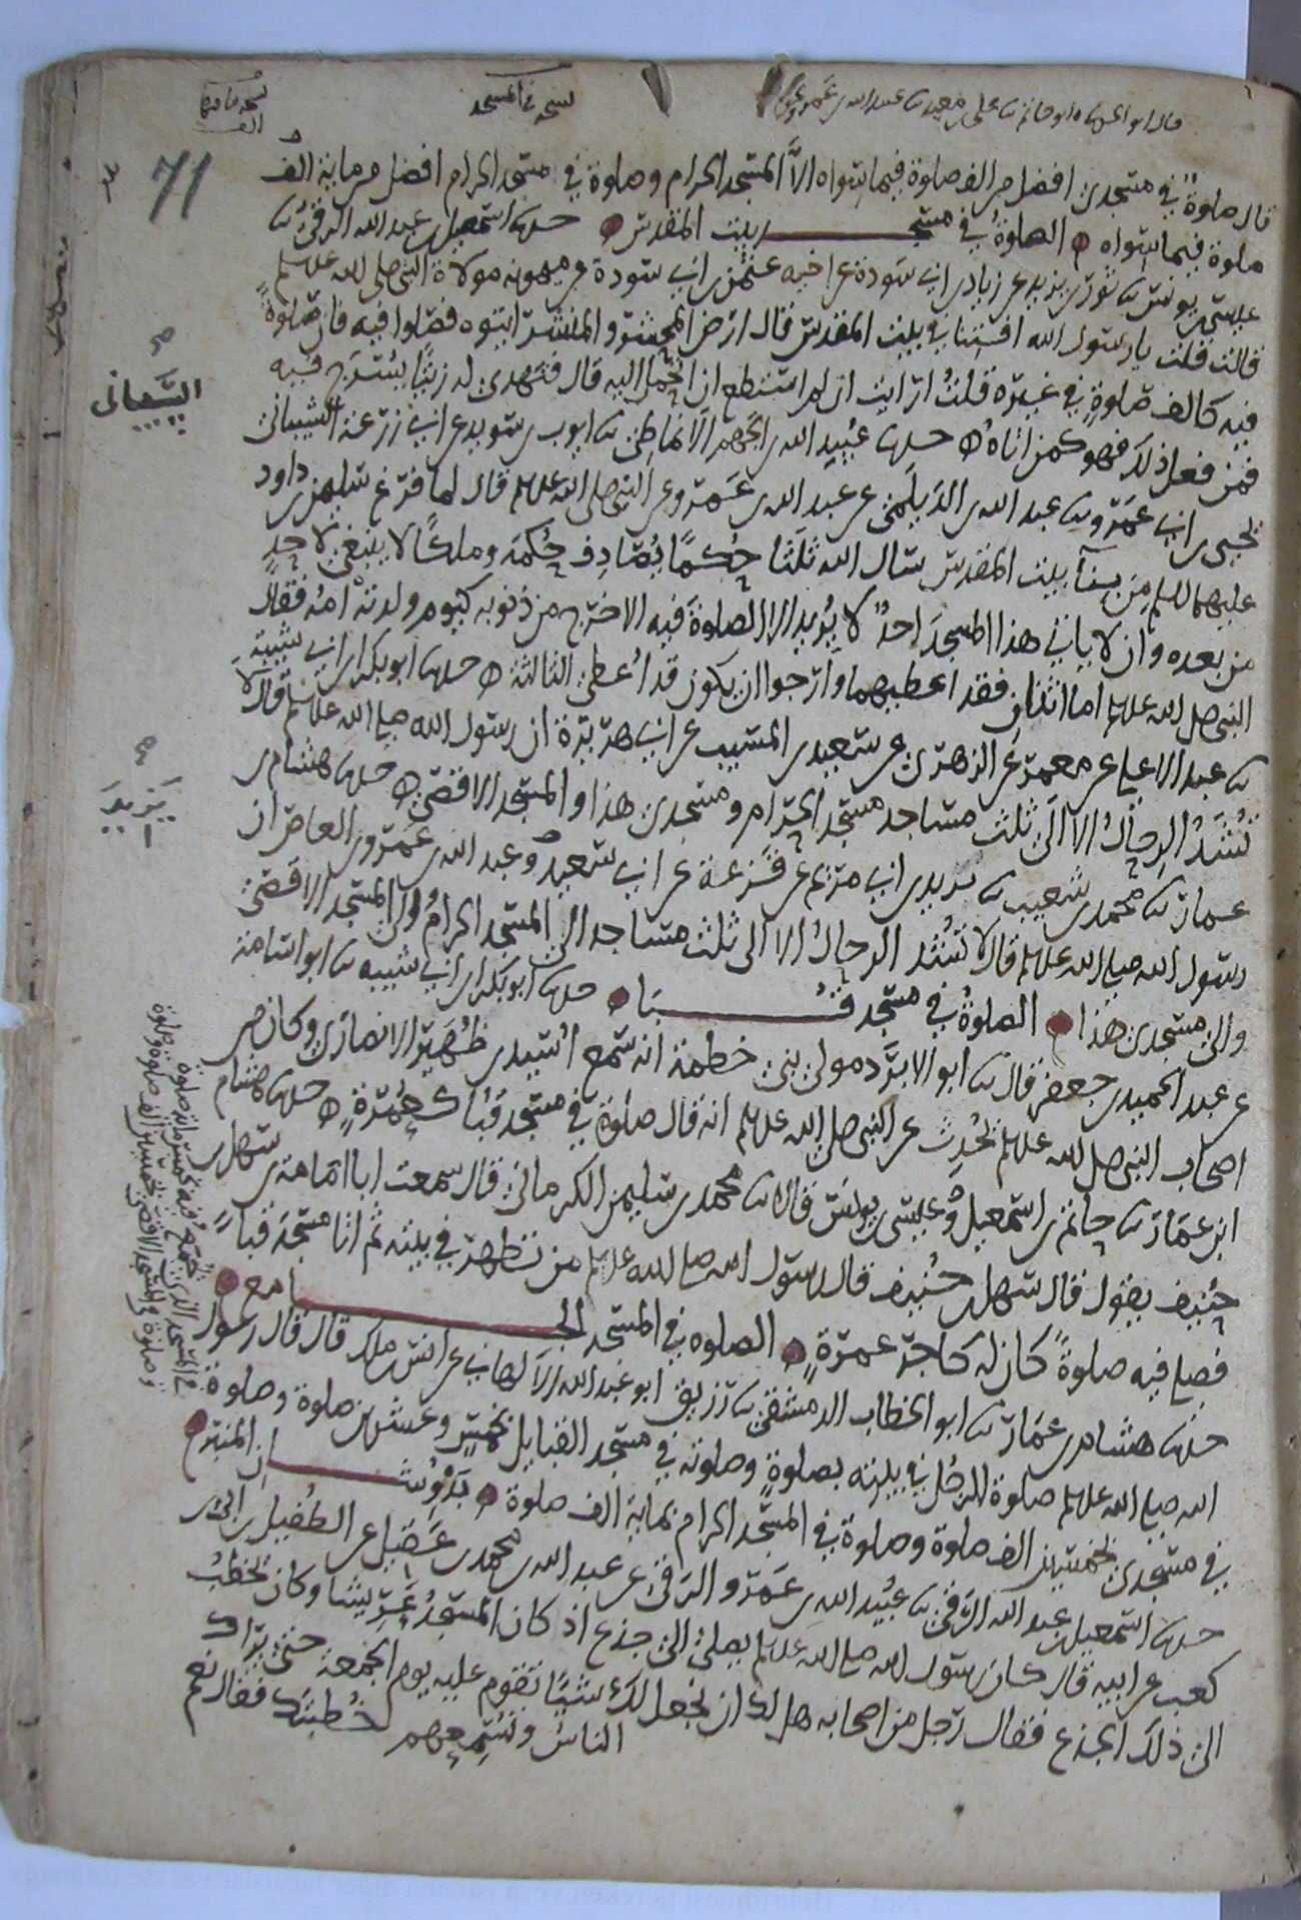 نسخة في المسجد
71
قال صلوةٌ في مسجدي افضل من الف صلوة فيما سواه الاَّ المسجد الحرام وصلوة في مسجد الحرام افضل من ماية الف
صلوة فيما سواه الصلوةُ في مسجد بيت المقدس حدثنا اسمعيل بن عبد الله الرقي ثنا
عيسى بن يونس ثنا ثور بن يزيد عن زياد بن ابي سودة عن اخيه عثمن بن ابي سودة عن ميمونه مولاة النبي صلى الله عليه وسلم
قالت قلت يا رسول الله افتنا في بيت المقدس قال ارض المحشر والمنشر ايتوه فصلوا فيه فان صلوةً
فيه كالف صلوةٍ في غيره قلتُ ارايت ان لم استطع ان اتحمل اليه قال فتهدي له زيتًا يسرج فيه
فمن فعل ذلك فهو كمن اتاه حدثنا عبيد الله بن الجهم الانماطي ثنا ايوب بن سويد عن ابي زرعة الشيباني
يحيى بن ابي عمرو ثنا عبد الله بن الديلمي عن عبد الله بن عمرو عن النبي صلى الله عليه وسلم قال لما فرغ سليمن بن داود
عليهما السلم من بنآ بيت المقدس سال الله ثلثا حكمًا يصادف حكمه وملكًا لا ينبغي لاحدٍ
من بعده وان لا ياتي هذا المسجد احدٌ لا يريد الا الصلوة فيه الا خرج من ذنوبه كيوم ولدته امه فقال
النبي صلى الله عليه وسلم اما اثنتان فقد اعطيهما وارجوا ان يكون قد اُعطي الثالثة حدثنا ابو بكر بن ابي شيبة
ثنا عبد الاعلى عن معمر عن الزهري عن سعيد بن المسيب عن ابي هريرة ان رسول الله صلى الله عليه وسلم قال لا
تُشَدُّ الرحالُ الا الى ثلث مساجد مسجد الحرام ومسجدي هذا والمسجد الاقصى حدثنا هشام بن
عمار ثنا محمد بن شعيب ثنا يزيد بن ابي مريم عن قزعة عن ابي سعيد وعبد الله بن عمرو بن العاص ان
رسول الله صلى الله عليه وسلم قال لا تُشد الرحالُ الا الى ثلث مساجد الى المسجد الحرام والى المسجد الاقصى
والى مسجدي هذا الصلوةُ في مسجد قُبا حدثنا ابو بكر بن ابي شيبه ثنا ابو اسامة
عن عبد الحميد بن جعفر قال ثنا ابو الابرد مولى بني خطمة انه سمع اُسيد بن ظهير الانصاري وكان من
اصحاب النبي صلى الله عليه وسلم يحدث عن النبي صلى الله عليه وسلم انه قال صلوة في مسجد قُبا كعُمرةٍ حدثنا هشام
ابن عمار ثنا حاتم بن اسمعيل وعيسى بن يونس قالا ثنا محمد بن سليمن الكرماني قال سمعت ابا امامة بن سهل بن
حنيف يقول قال سهل بن حُنيف قال رسول الله صلى الله عليه وسلم من تطهر في بيته ثم اتا مسجد قباً
فصلى فيه صلوةً كان له كاجر عمرةٍ الصلوه في المسجد الجامع
حدثنا هشام بن عمار ثنا ابو الخطاب الدمشقي ثنا رزيق ابو عبد الله الالهاني عن انس بن ملك قال قال رسول
الله صلى الله عليه وسلم صلوة الرجل في بيته بصلوةٍ وصلوته في مسجد القبايل بخمسٍ وعشرين صلوة وصلوة
في المسجد الذي يُجمّع فيه بخمس ماية صلوة
وصلوة في المسجد الاقصى بخمسين الف صلوة وصلوة
في مسجدي بخمسين الف صلوة وصلوة في المسجد الحرام بماية الف صلوة بَدْوُ شان المنبر
حدثنا اسمعيل بن عبد الله الرقي ثنا عبيد الله بن عمرو الرقي عن عبد الله بن محمد بن عقيل عن الطُفيل بن ابي بن
كعب عن ابيه قال كان رسول الله صلى الله عليه وسلم يصلي الى جذع اذ كان المسجد عريشا وكان يخطُب
الى ذلك الجذع فقال رجل من اصحابه هل لك ان نجعل لك شيًا تقوم عليه يوم الجمعة حتى يراك
الناسُ وتُسمعهم خُطبتَك فقال نعم
الشيباني
يَزيد